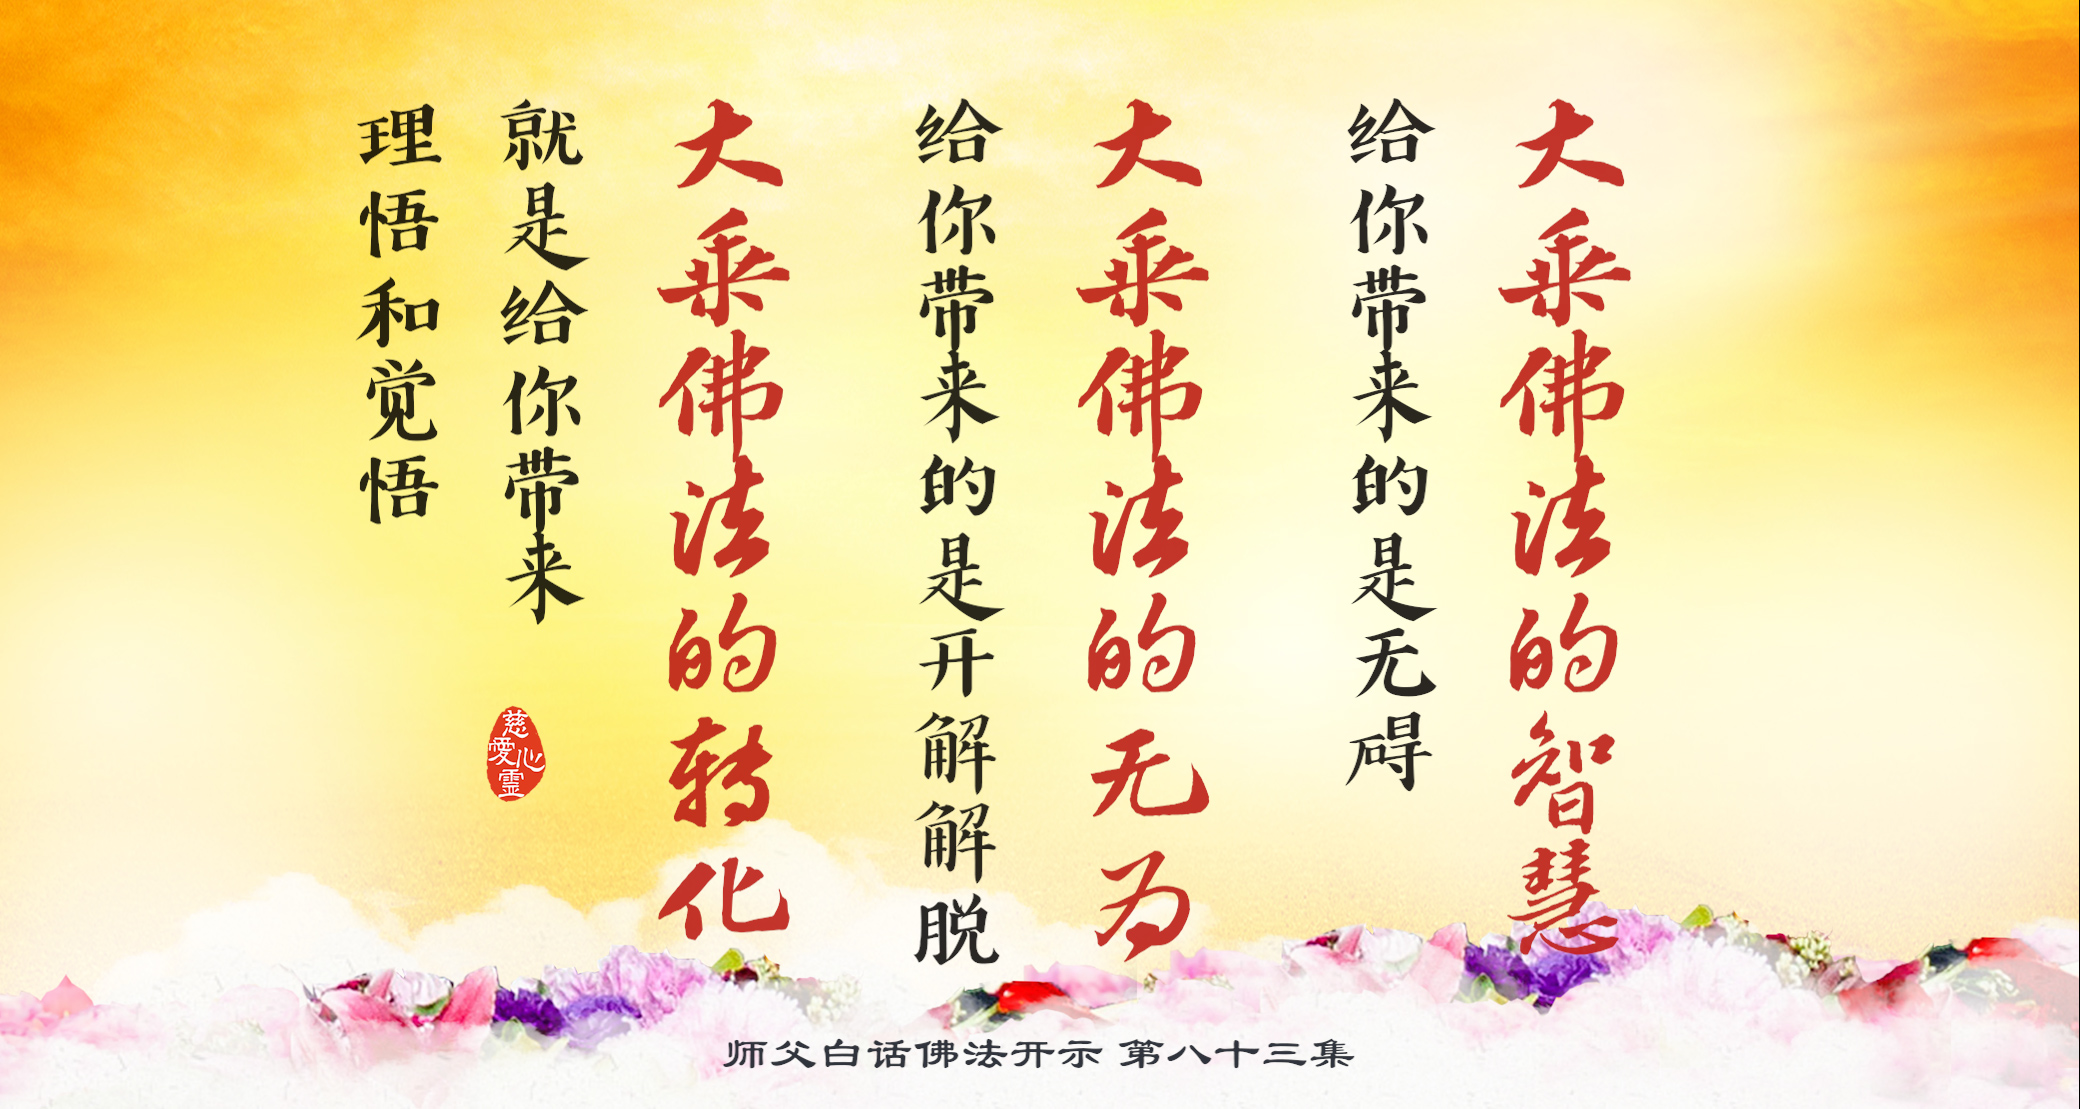 大乘佛法的智慧
给你带来的是无碍
大乘佛法的无为
给你带来的是开解解脱
大乘佛法的转化
就是给你带来
理悟和觉悟
慈愛心靈
师父白话佛法开示 第八十三集